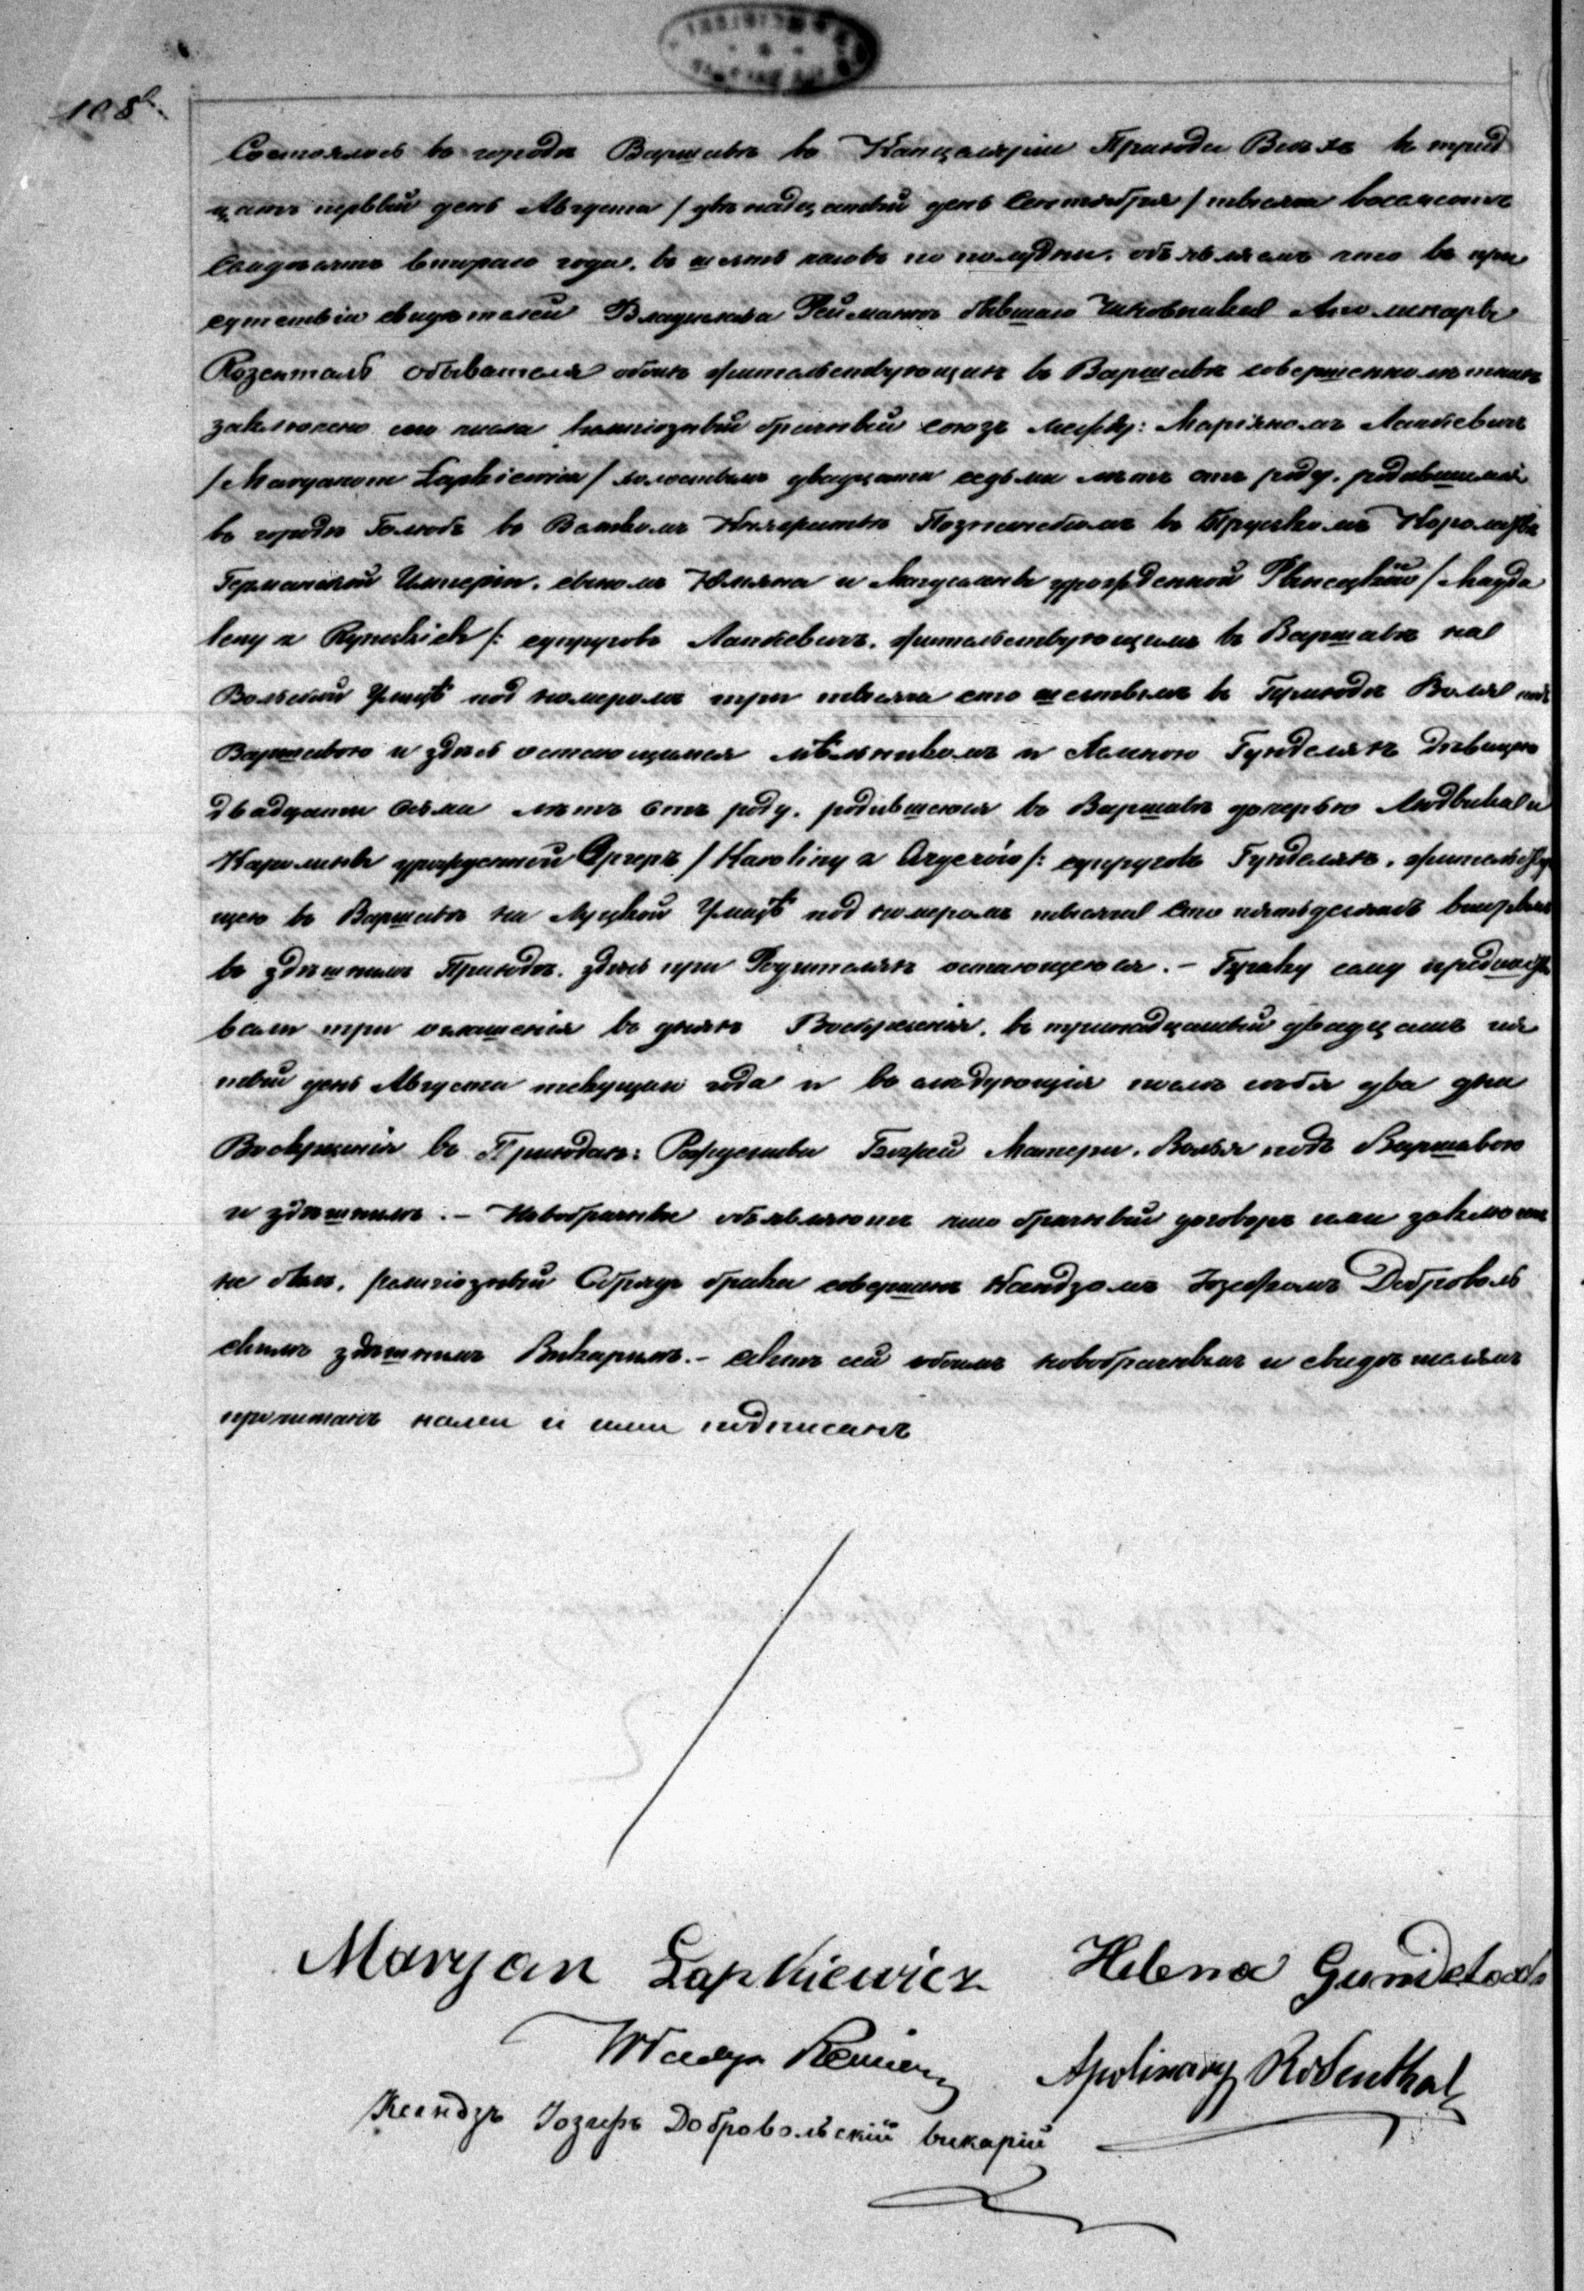 108
Состоялось въ городѣ Варшавѣ въ Канцеляріи Прихода въ трид
цать первый день Августа /двѣнадцатый день Сентября/ тысяча восемсотъ
втораго года, въ шесть часовъ по полудни, объявляемъ что въ при
сутствіи свидѣтелей Владислава Реймантъ бывшаго Чиновника Аполинары
Розенталь обывателя обоихъ жительствующихъ въ Варшавѣ совершеннолѣтнихъ
заключено сего числа религіозный брачный союзъ между: Маріяномъ Лапкевичъ
/Maryanem Łapkiewicz/ холостымъ двадцати седьми лѣтъ отъ роду, родившимся
въ городѣ Голюбъ въ Княжествѣ Познанскомъ въ Прусскомъ Королевствѣ
Германской Имперіи, сыномъ Юліяна и Магдалены урожденной Рынецкій /Magda
leny z Ryneckich/: супруговъ Лапкевичъ, жительствующимъ въ Варшавѣ на
Вольской Улицѣ под номеромъ три тысяча сто шестымъ въ Приходѣ Воля подъ
Варшавою и здѣсь остающимся мѣльникомъ и Еленою Гунделахъ дѣвицею
двадцати семи лѣтъ отъ роду, родившеюся въ Варшавѣ дочерью Людвика и
Каролины урожденной Аргеръ /Karoliny z Argerów/: супруговъ Гунделахъ, жительствую
щею въ Варшавѣ на Луцкой Улицѣ под номеромъ тысяча сто пятьдесятъ вторымъ
въ здѣшнемъ Приходѣ, здѣсь при Родителяхъ остающеюся. – Браку сему предшество
вали три оглашенія въ дняхъ Воскресенія, въ тринадцатый двадцать пя
тый день Августа текущаго года и въ слѣдующія послѣ себя два дни
Воскресенія въ Приходахъ: Рождества Божей Матери, Воля подъ Варшавою
и здѣшнемъ. – Новобрачные объявляютъ что брачный договоръ ими заключенъ
не былъ, религіозный Обрядъ брака совершенъ Ксендзомъ Іозефомъ Доброволь
скимъ здѣшнимъ Викаримъ. – Актъ сей обоимъ новобрачнымъ и свидѣтелямъ
прочитанъ нами и ими подписанъ
Maryan Łapkiewicz Helena Gundelach
Apolinary Rosenthal
Ксендзъ Іозефъ Добровольскій викарій